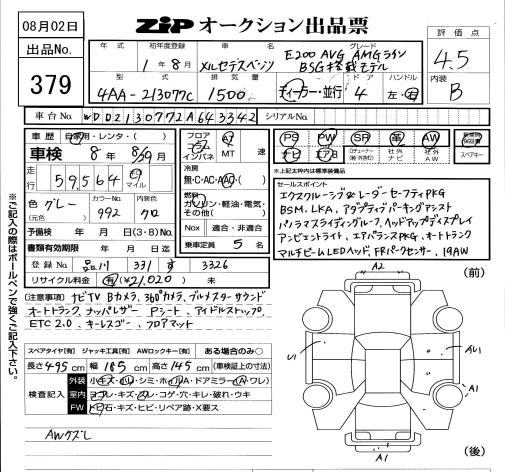 08月02日
ZIP オークション出品票
出品No.
379
年式 初年度登録 車名 グレード
1年8月 メルセデスベンツ E200 AVG AMGライン
BSG搭載モデル
評価点
4.5
内装
B
型式 排気量 ドア ハンドル
4AA-213077C 1500 ディーラー・並行 4 左・右
車台No. WDD2130772A643342 シリアルNo.
車歴 自家用・レンタ・( )
車検 8年 8/9月
走行 59,564 km マイル
色 グレー カラーNo. 992 内装色 クロ
(元色)
予備検 年 月 日 (3・8) No.
書類有効期限 年 月 日迄
登録No. 品川 331 す 3326
リサイクル料金 有 (¥21,020) 未
フロア コラム インパネ AT MT 速
冷房
無・C・AC・AAC・( )
燃料
ガソリン・軽油・電気・
その他( )
Nox 適合・非適合
乗車定員 5 名
PS PW SR 革 AW
ナビ エアB
社外ナビ 社外AW
スペアキー
※上記太枠内は標準装備品
セールスポイント
エクスクルーシブ& レーダーセーフティPKG
BSM、LKA、アダプティブパーキングアシスト
パノラマスライディングルーフ、ヘッドアップディスプレイ
アンビエントライト、エアバランスPKG、オートトランク
マルチビームLEDヘッド、FRパークセンサー、19AW
(注意事項) ナビTV Bカメラ、360°カメラ、ブルメスターサウンド
オートトランク、ナッパレザー Pシート、アイドルストップ、
ETC2.0、キーレスゴー、フロアマット
スペアタイヤ[有] ジャッキ工具[有] AWロックキー[有] ある場合のみ○
長さ 495cm 幅 185cm 高さ 145cm (車検証上の寸法)
検査記入
外装 小キズ・凹・シミ・ホイルA・ドアミラー(A・ワレ)
室内 ヨゴレ・キズ・スレ・コゲ・穴・キレ・破れ・ウキ
FW トビ石・キズ・ヒビ・リペア跡・X要ス
AWケズレ
※ご記入の際はボールペンで強くご記入下さい。
(前)
A2
U1
AU1
A1
A1
(後)